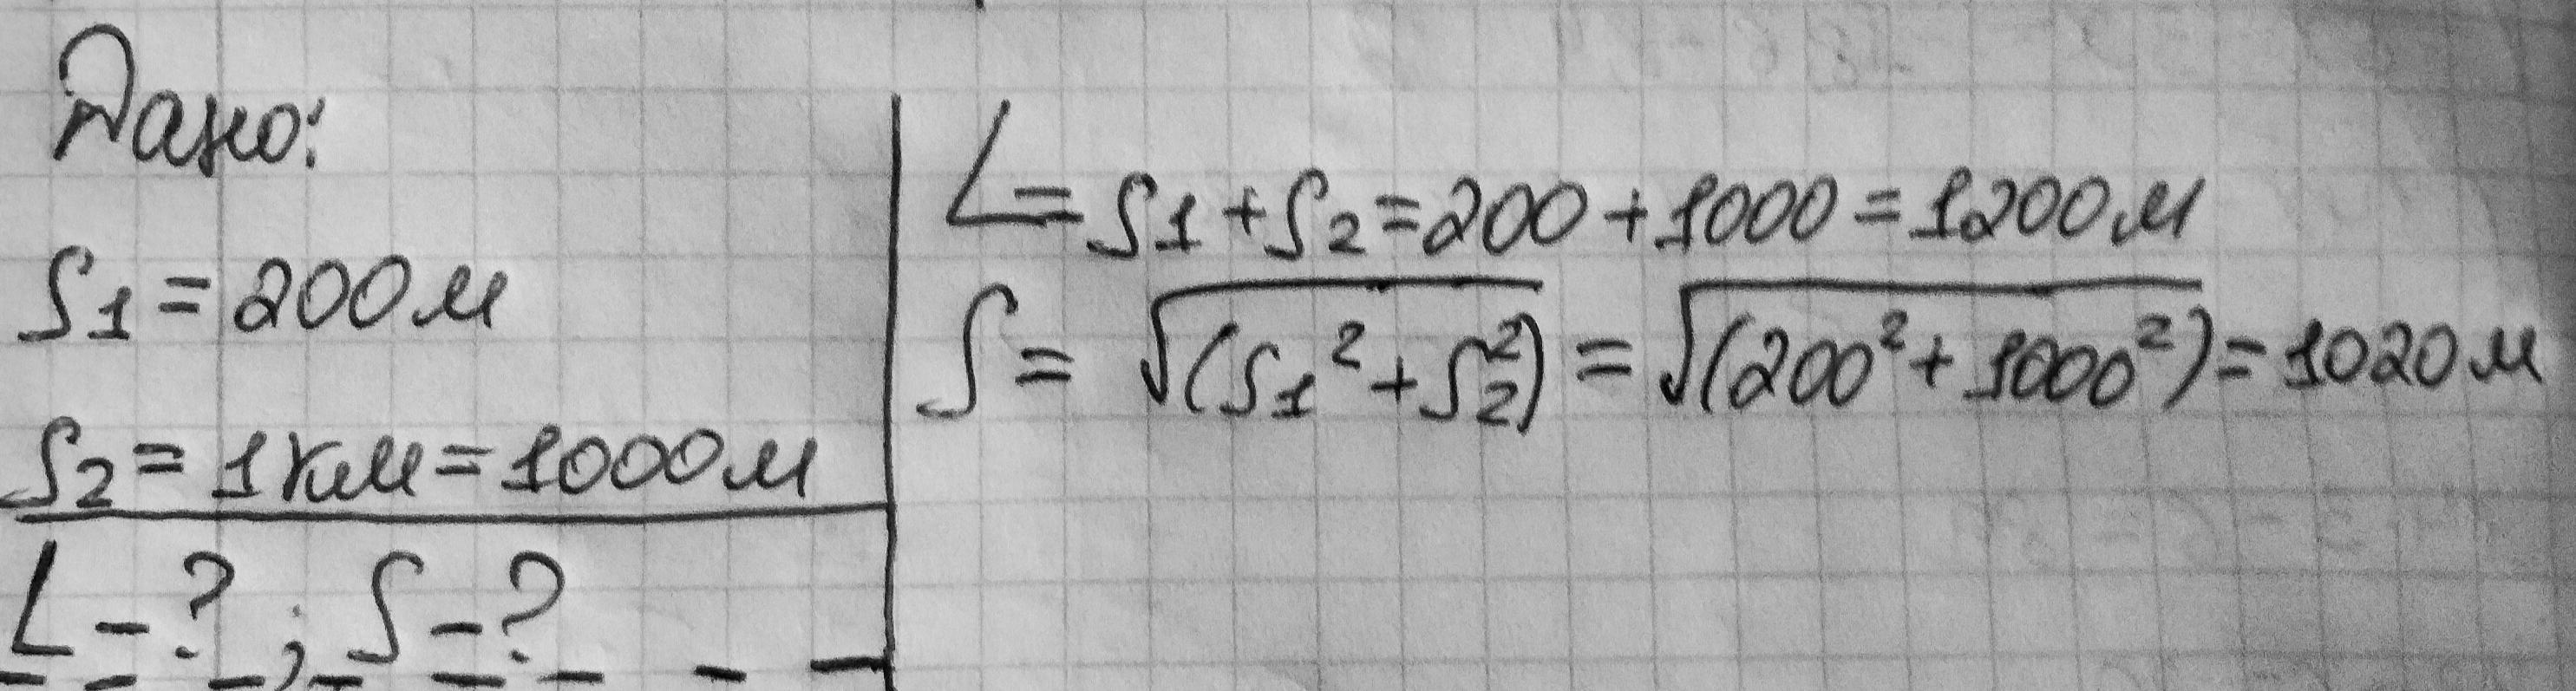 Дано:
S1 = 200 м
S2 = 1 км = 1000 м
L - ? ; S - ?
L = S1 + S2 = 200 + 1000 = 1200 м
S = √(S1² + S2²) = √(200² + 1000²) = 1020 м